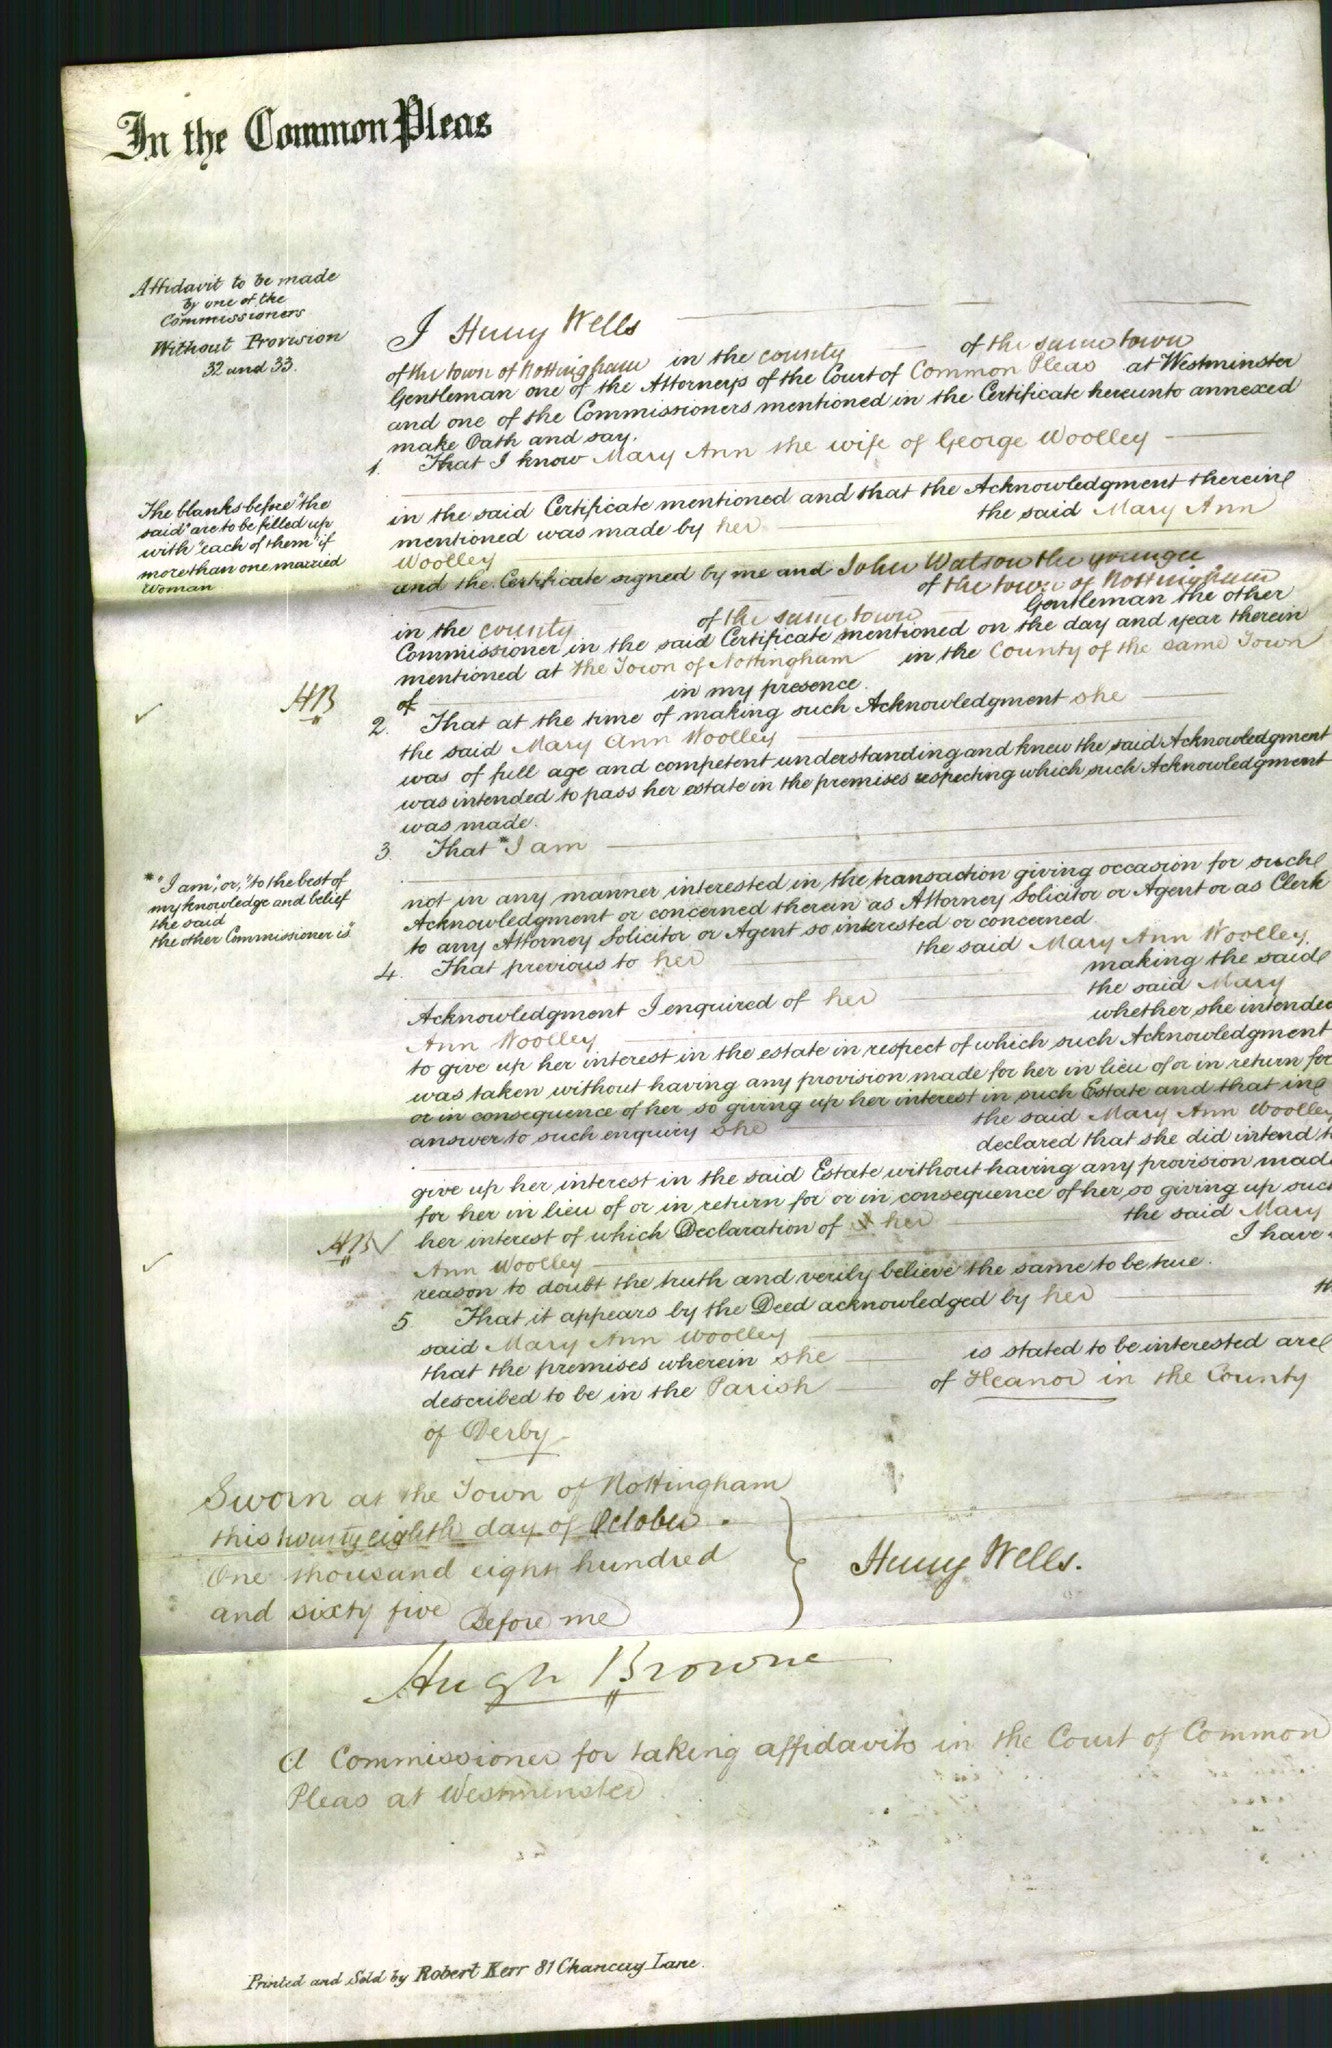 In the Common Pleas
Affidavit to be made
by one of the
Commissioners
Without Provision
32 and 33.
I Henry Wells
of the town of Nottingham in the county of the same town
Gentleman one of the Attorneys of the Court of Common Pleas at Westminster
and one of the Commissioners mentioned in the Certificate hereunto annexed
make Oath and say.
1. That I know Mary Ann the wife of George Woolley
The blanks before "the
said" are to be filled up
with "each of them" if
more than one married
Woman
in the said Certificate mentioned and that the Acknowledgment therein
mentioned was made by her the said Mary Ann
Woolley
and the Certificate signed by me and John Watson the younger
of the town of Nottingham
in the county of the same town Gentleman the other
Commissioner in the said Certificate mentioned on the day and year therein
mentioned at the Town of Nottingham in the County of the same Town
of in my presence.
HB
2. That at the time of making such Acknowledgment she
the said Mary Ann Woolley
was of full age and competent understanding and knew the said Acknowledgment
was intended to pass her estate in the premises respecting which such Acknowledgment
was made.
3. That * I am
* "I am", or, "to the best of
my knowledge and belief
the said
the other Commissioner is"
not in any manner interested in the transaction giving occasion for such
Acknowledgment or concerned therein as Attorney Solicitor or Agent or as Clerk
to any Attorney Solicitor or Agent so interested or concerned.
4. That previous to her the said Mary Ann Woolley
making the said
Acknowledgment I enquired of her the said Mary
Ann Woolley whether she intended
to give up her interest in the estate in respect of which such Acknowledgment
was taken without having any provision made for her in lieu of or in return for
or in consequence of her so giving up her interest in such Estate and that in
answer to such enquiry she the said Mary Ann Woolley
declared that she did intend t
give up her interest in the said Estate without having any provision made
for her in lieu of or in return for or in consequence of her so giving up such
HB
her interest of which Declaration of her the said Mary
Ann Woolley I have
reason to doubt the truth and verily believe the same to be true.
5. That it appears by the Deed acknowledged by her th
said Mary Ann Woolley
that the premises wherein she is stated to be interested are
described to be in the Parish of Heanor in the County
of Derby
Sworn at the Town of Nottingham
this twenty eighth day of October
One thousand eight hundred
and sixty five Before me
Henry Wells.
Hugh Browne
A Commissioner for taking affidavits in the Court of Common
Pleas at Westminster
Printed and Sold by Robert Kerr 81 Chancery Lane.